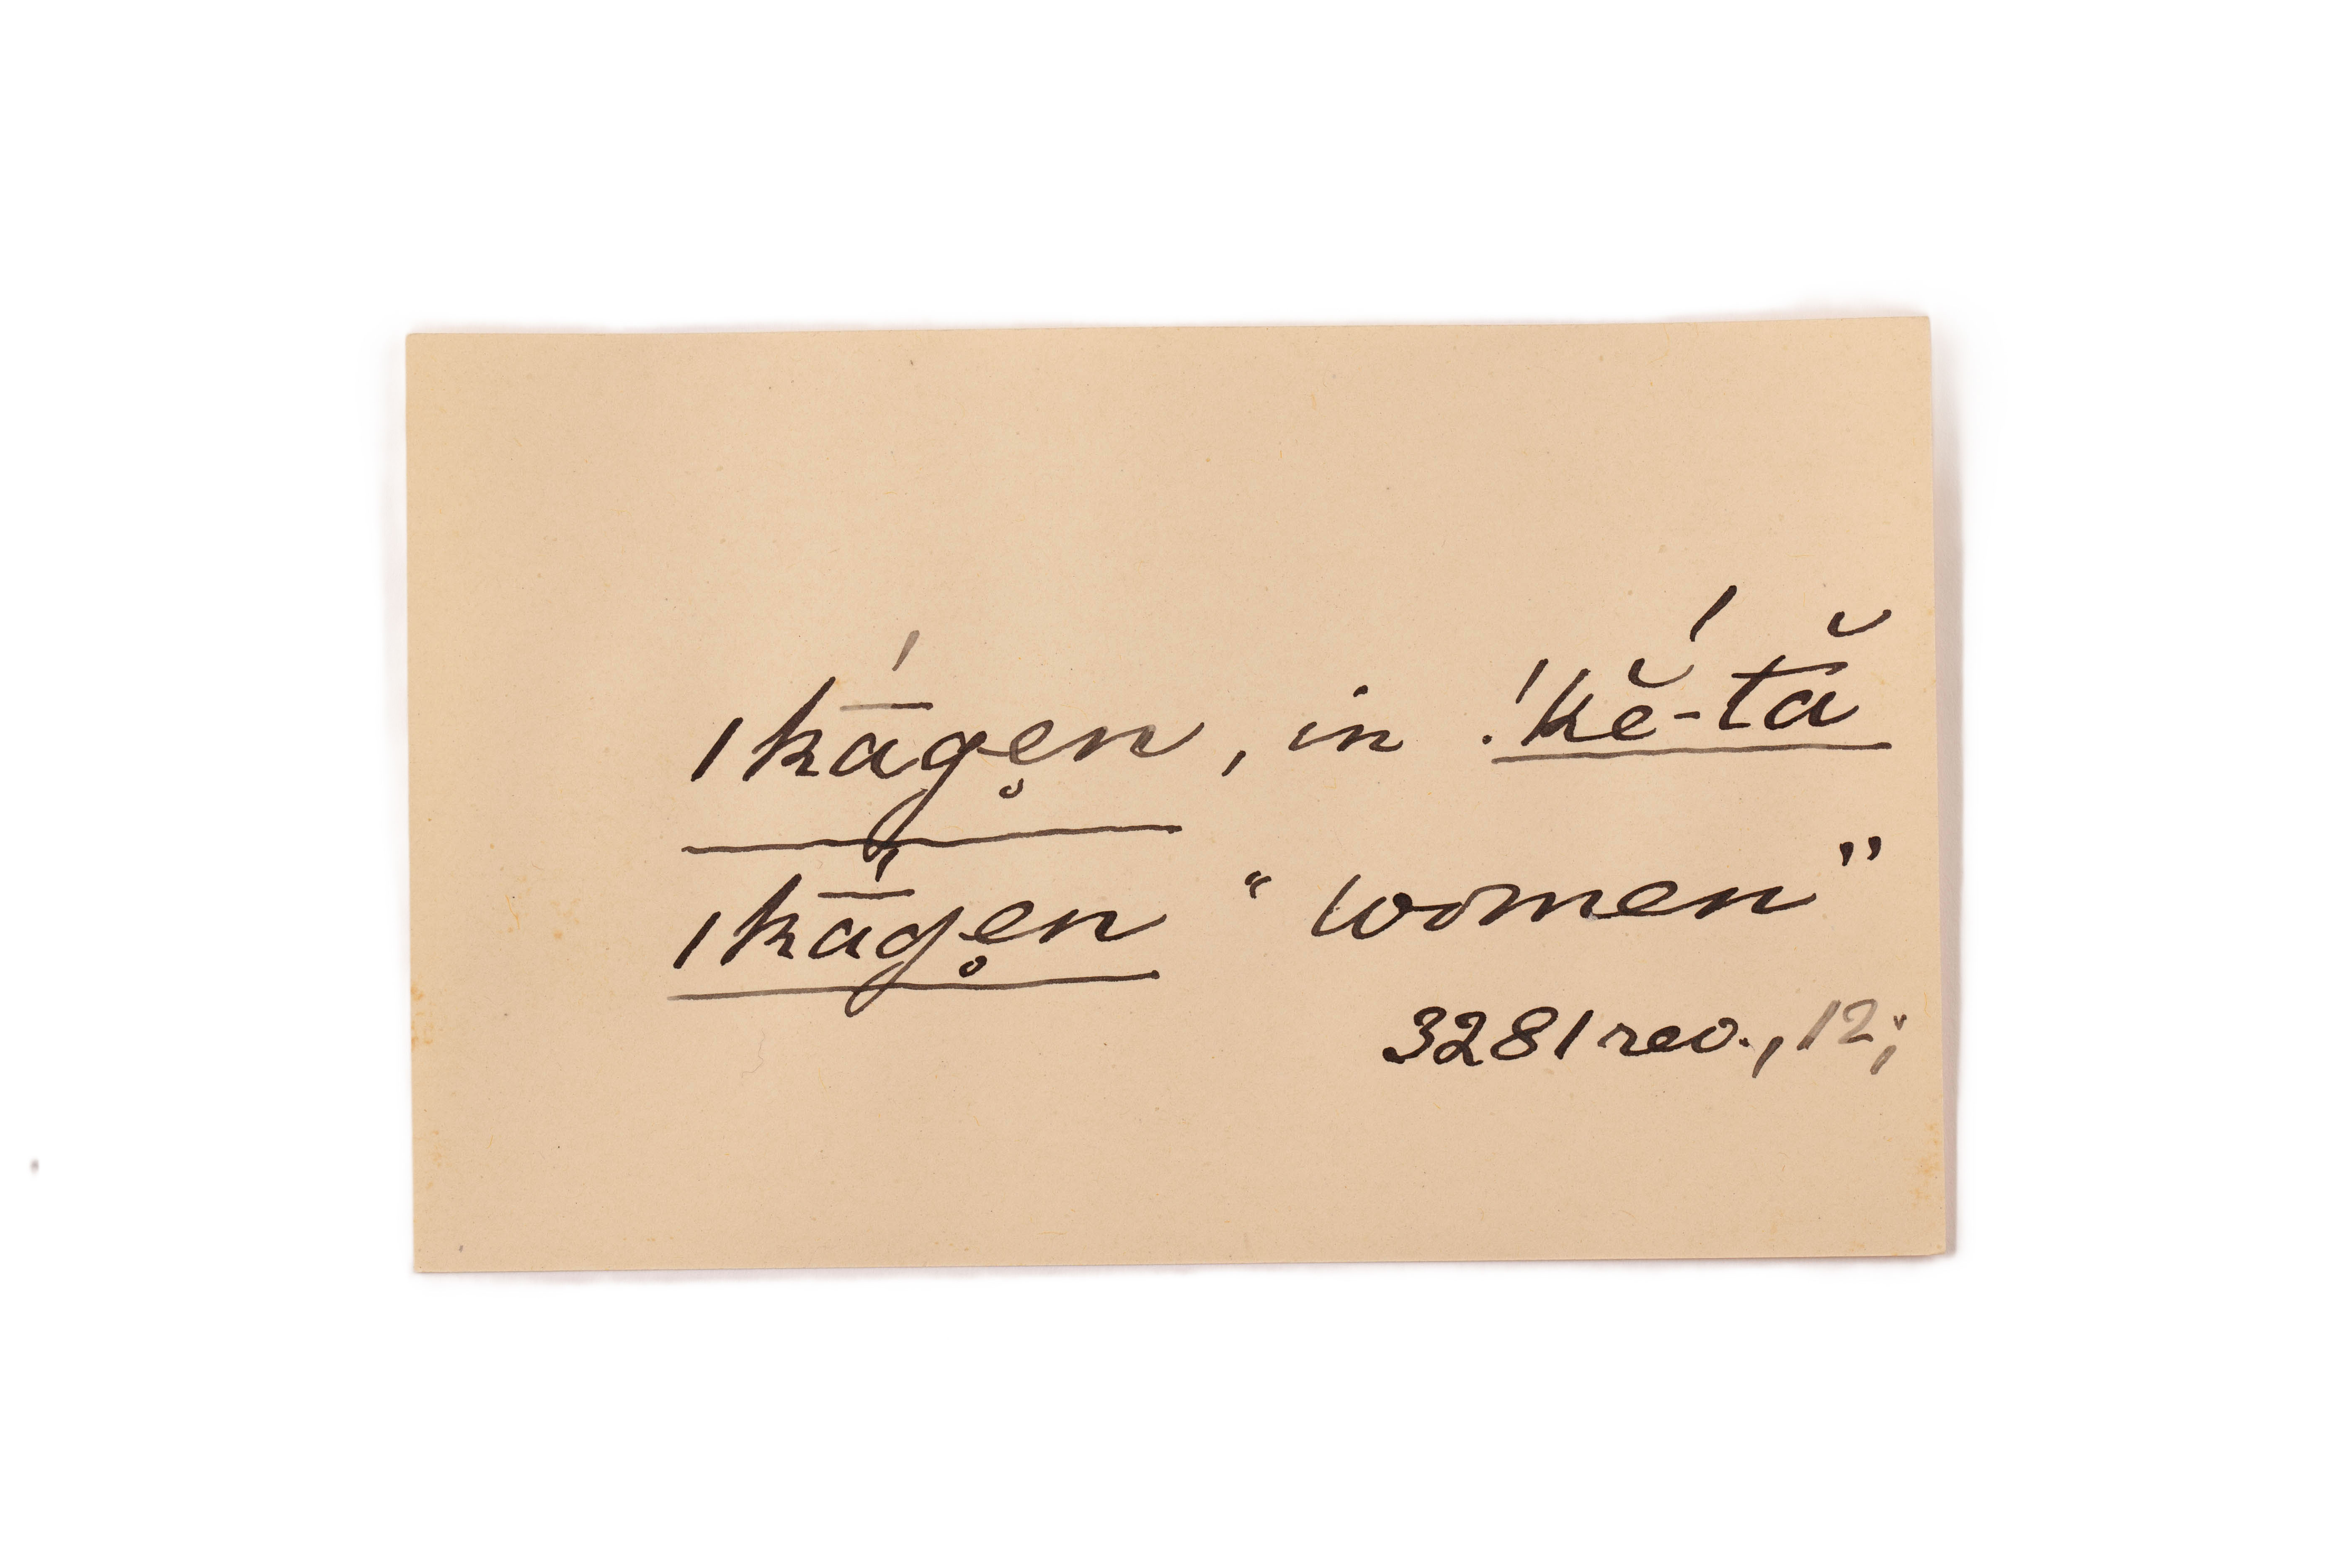 |kā́ge̥n, in !kĕ́-tă
|kā́ge̥n “women”
3281 rev., 12;